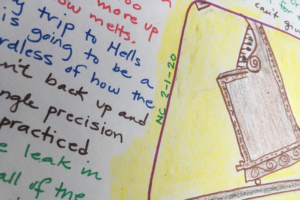 more up
now melts.
y trip to Hells
is going to be a
rdless of how the
n't back up and
ngle precision
practiced
e leak in
all of the
NG 2-1-20
can't giv